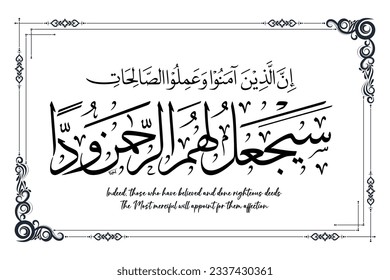 إِنَّ الَّذِينَ آمَنُوا وَعَمِلُوا الصَّالِحَاتِ
سَيَجْعَلُ لَهُمُ الرَّحْمَٰنُ وُدًّا
Indeed, those who have believed and done righteous deeds
The Most merciful will appoint for them affection.
shutterstock.com · 2337430361